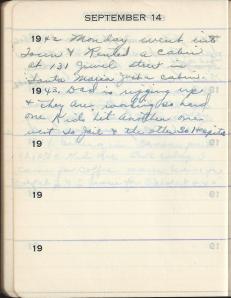 SEPTEMBER 14
1942 Monday went into
Town & Rented a Cabin
at 131 Jewel street in
Santa Maria cabin.
1943. Dad is rigging up
& they are working so hard
one Kid hit another one
went to Jail & the other to Hospital
19
19
19